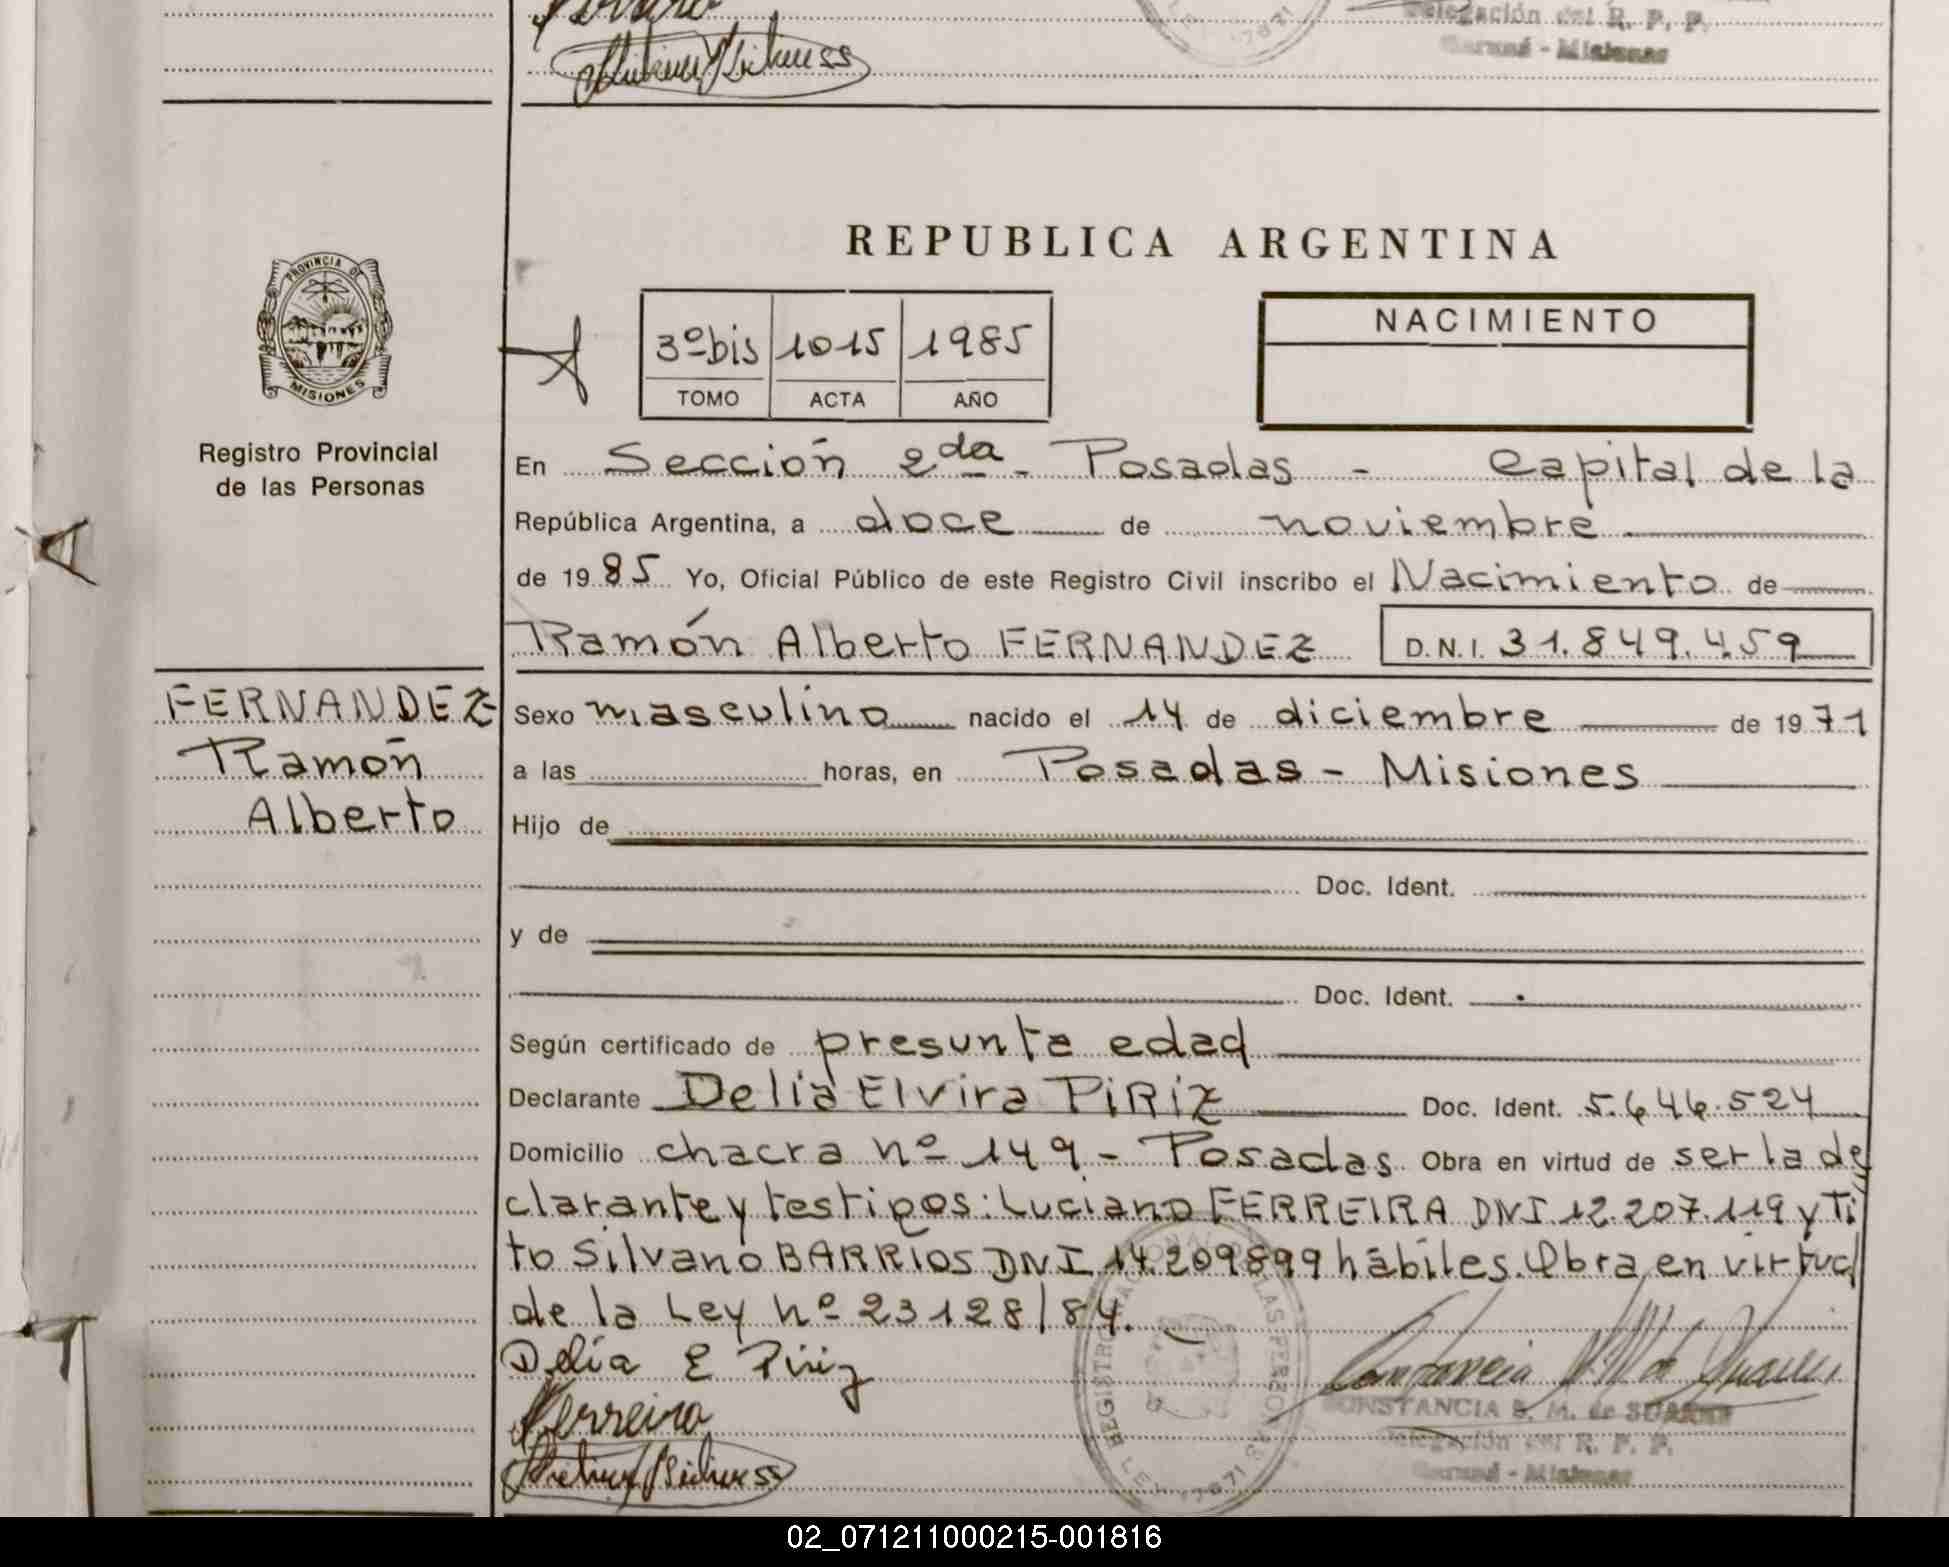 Delegación del R. P. P.
Garupá - Misiones
REPUBLICA ARGENTINA
PROVINCIA DE
MISIONES
Registro Provincial
de las Personas
3º bis 1015 1985
TOMO ACTA AÑO
NACIMIENTO
En Sección 2da - Posadas - Capital de la
República Argentina, a doce de noviembre
de 1985 Yo, Oficial Público de este Registro Civil inscribo el Nacimiento de
Ramón Alberto FERNANDEZ D.N.I. 31.849.459
FERNANDEZ
Ramón
Alberto
Sexo masculino nacido el 14 de diciembre de 1971
a las horas, en Posadas - Misiones
Hijo de
Doc. Ident.
y de
Doc. Ident.
Según certificado de presunta edad
Declarante Delia Elvira PIRIZ Doc. Ident. 5.646.524
Domicilio chacra nº 149 - Posadas Obra en virtud de ser la de
clarante y testigos: Luciano FERREIRA DNI 12.207.119 y Ti
to Silvano BARRIOS DNI 14.209899 hábiles. Obra en virtud
de la Ley nº 23128/84.
Delia E Piriz
Ferreira
CONSTANCIA S. M. de SUAREZ
Delegación del R. P. P.
Garupá - Misiones
REGISTRO NACIONAL DE LAS PERSONAS
LEY 17671
02_071211000215-001816